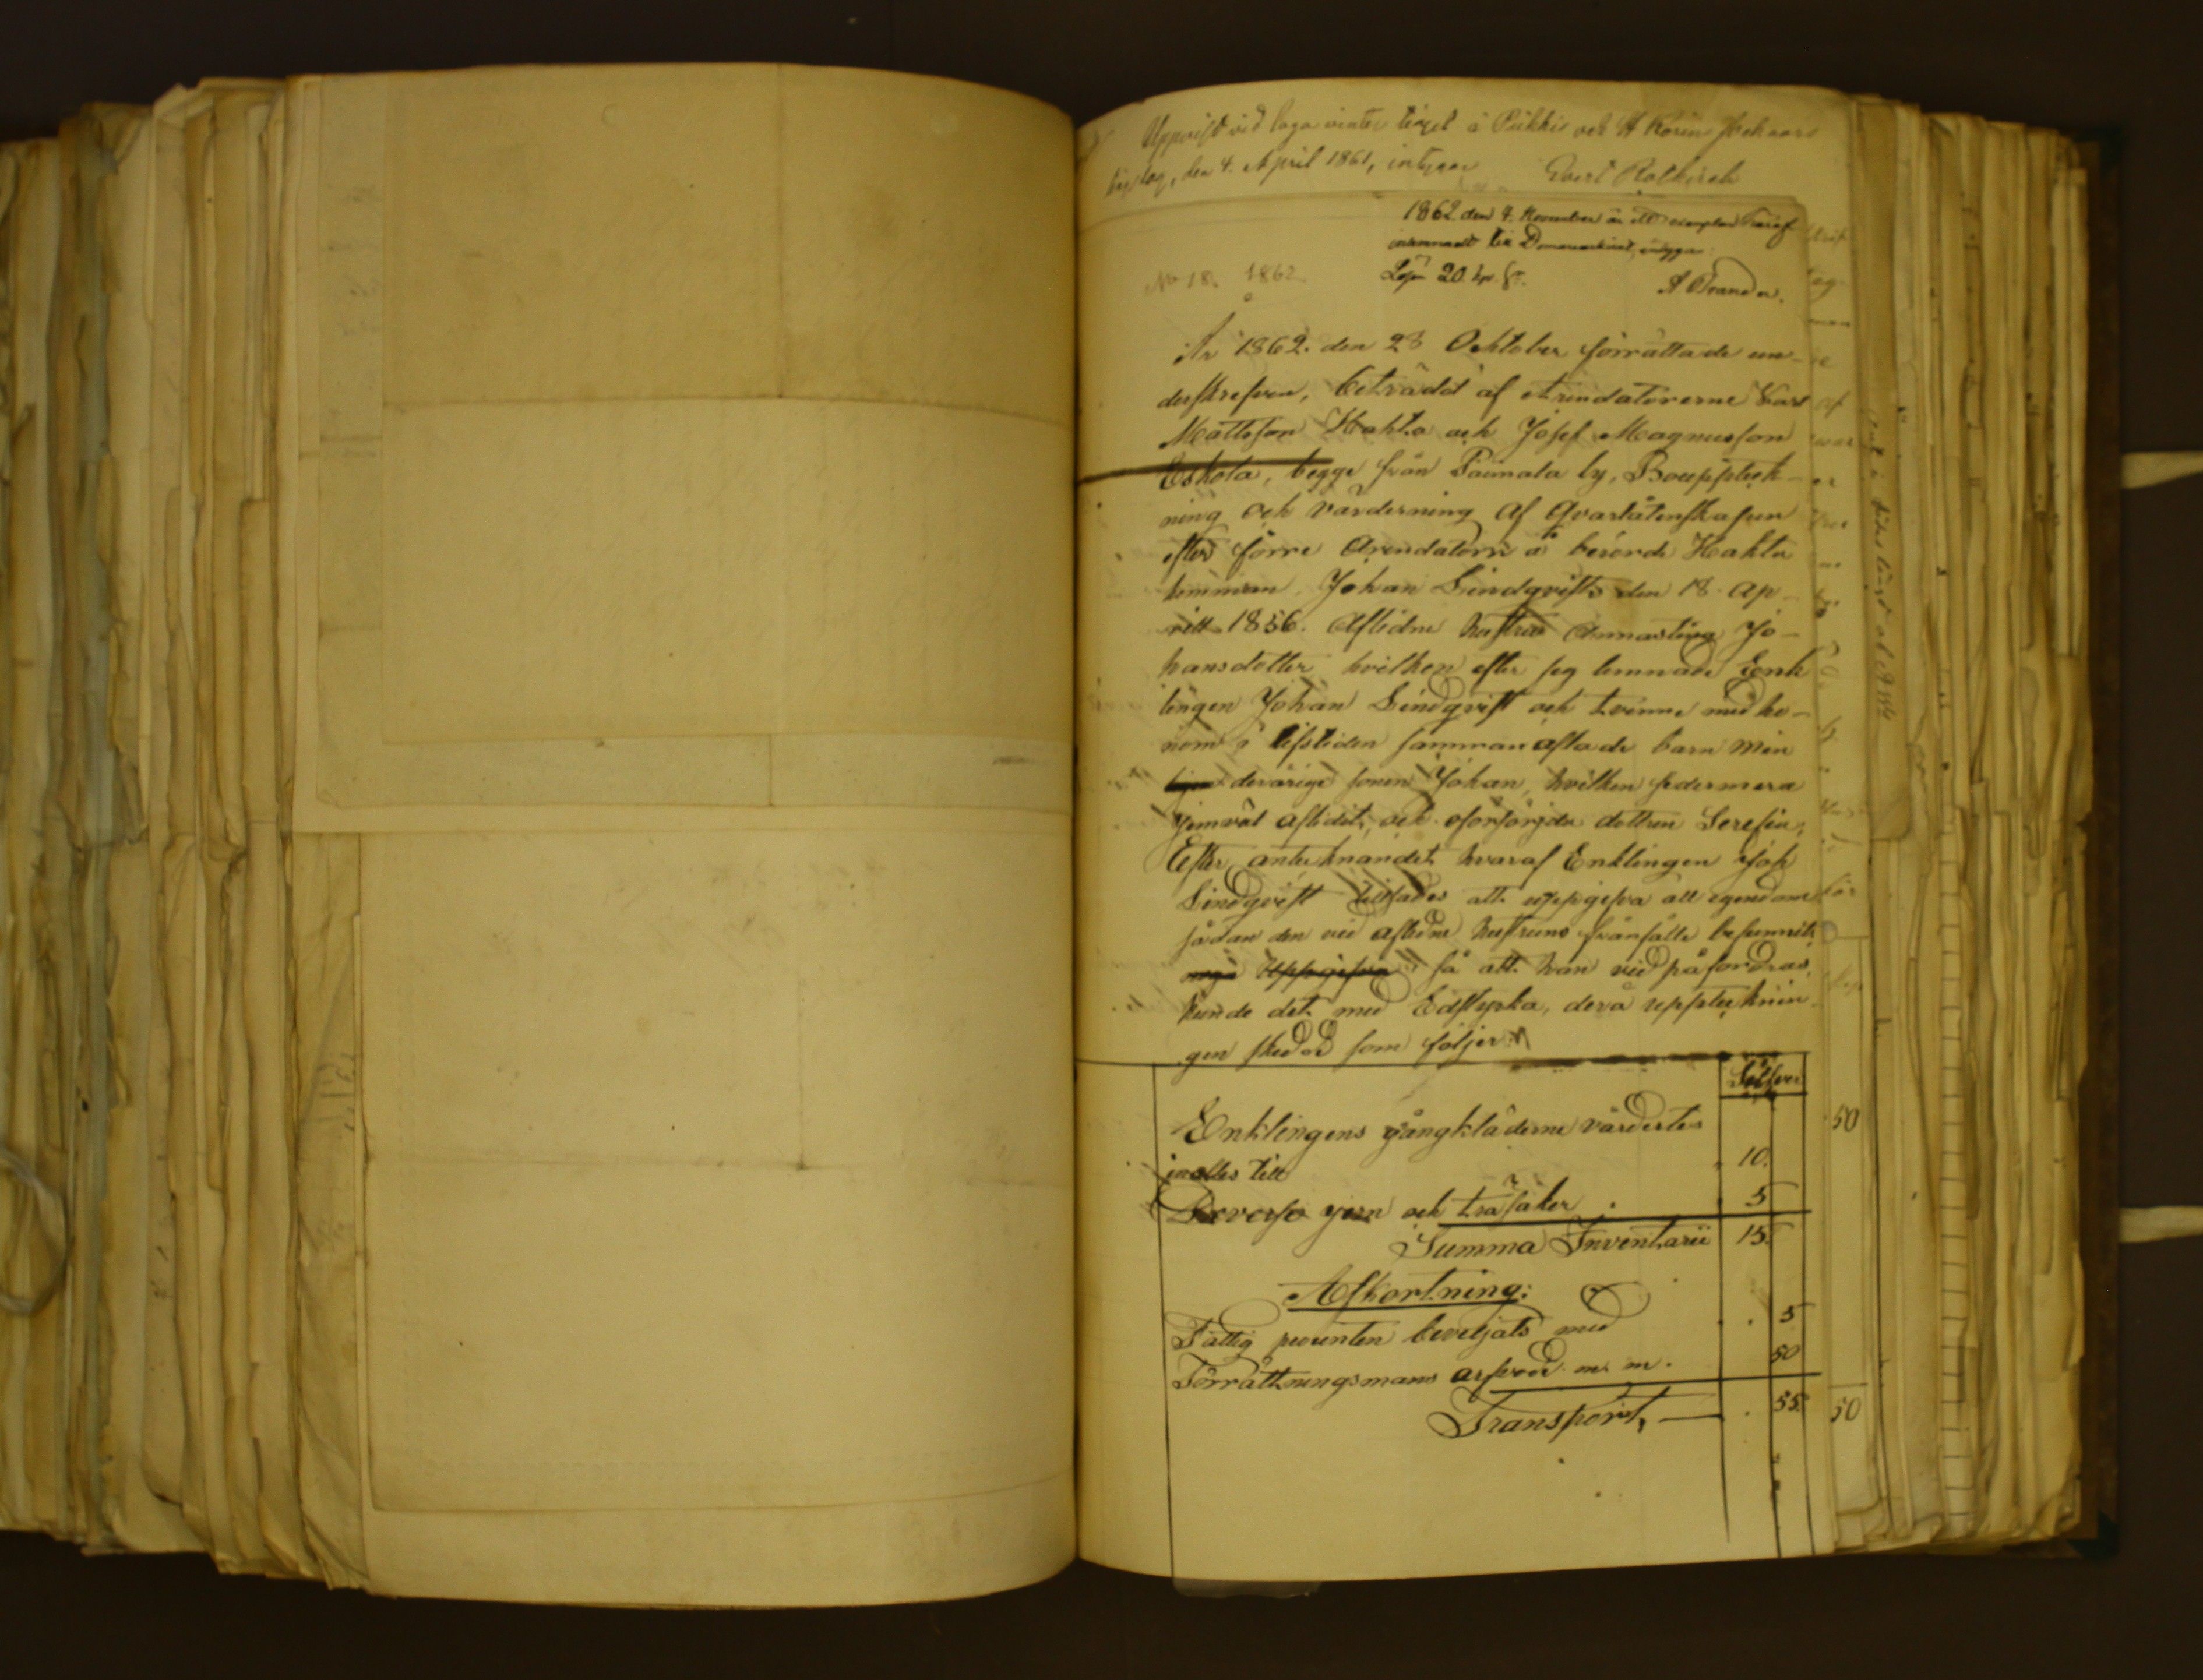 Uppvist vid laga vinter tinget å Piikkis och St Karins socknars
tingslag, den 4. April 1861, intygar Evert Rotkirch
1862 den 4. November är ett exemplar häraf
inlemnadt till Domareembetet, intygar
Lösen 20. kop. Sr. A Brander.
No 18. 1862
År 1862. den 28 Oktober förrättade un-
derskrefven, biträdd af Arendatorerne Karl
Mattsson Hakta och Josef Magnusson
Eskola, begge från Paimala by, Bouppteck-
ning och värderning af Qvarlåtenskapen
efter förre Arendatorn å berörde Hakta
hemman Johan Lindqvists den 18. Ap-
rill 1856. Aflidne hustru Annastina Jo-
hansdotter hvilken efter sig lemnade Enk
lingen Johan Lindqvist och tvenne med ho-
nom i lifstiden sammanaflade barn min
derårige sonen Johan, hvilken sedermera
jemväl aflidit, och oförsörjda dottren Serefia;
Efter antecknandet hvaraf Enklingen Joh
Lindqvist tillsades att uppgifva all egendom
sådan den vid aflidne hustruns frånfälle befunnits
noga uppgifva så att han vid påfordran
kunde det med Ed styrka, derå upptecknin
gen skedde som följer
Silfver
Enklingens gångkläderne värdertes
inalles till 10.
Diverse jern och träsaker 5
Summa Inventarii 15.
Afkortning:
Fattig procenten beviljats med 5
Förrättningsmans arfvod m. m. 50
Transport, — 55.
50
50